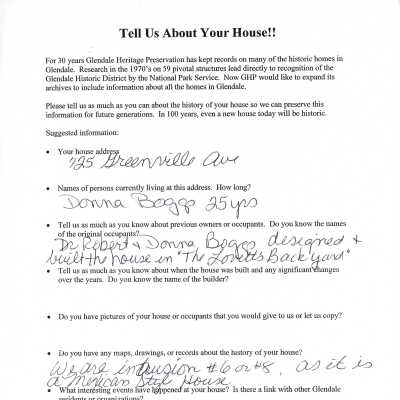 Tell Us About Your House!!
For 30 years Glendale Heritage Preservation has kept records on many of the historic homes in
Glendale. Research in the 1970's on 59 pivotal structures lead directly to recognition of the
Glendale Historic District by the National Park Service. Now GHP would like to expand its
archives to include information about all the homes in Glendale.
Please tell us as much as you can about the history of your house so we can preserve this
information for future generations. In 100 years, even a new house today will be historic.
Suggested information:
• Your house address
725 Greenville Ave
• Names of persons currently living at this address. How long?
Donna Boggs 25 yrs
• Tell us as much as you know about previous owners or occupants. Do you know the names
of the original occupants?
Dr Robert & Donna Boggs designed &
built the house in "The Lovetts Back yard"
• Tell us as much as you know about when the house was built and any significant changes
over the years. Do you know the name of the builder?
• Do you have pictures of your house or occupants that you would give to us or let us copy?
• Do you have any maps, drawings, or records about the history of your house?
We are intrusion #6 or #8, as it is
a Mexican Style House
• What interesting events have happened at your house? Is there a link with other Glendale
residents or organizations?